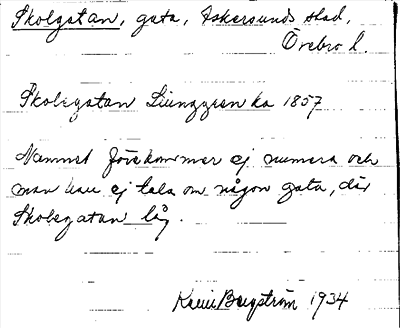 Skolgatan, gata, Askersunds stad,
Örebro l.
Skolegatan Ljunggren ka 1857
Namnet förekommer ej numera och
man kan ej tala om någon gata, där
Skolegatan låg.
Karin Bergström 1934